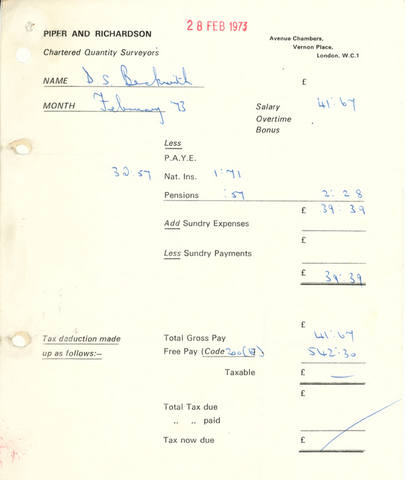 PIPER AND RICHARDSON
28 FEB 1973
Chartered Quantity Surveyors
Avenue Chambers,
Vernon Place,
London, W.C.1
NAME D S Beckwith £
MONTH February 73 Salary 41:67
Overtime
Bonus
Less
P.A.Y.E.
32:57 Nat. Ins. 1:71
Pensions :57 2:28
£ 39:39
Add Sundry Expenses
£
Less Sundry Payments
£ 39:39
£
Tax deduction made Total Gross Pay 41:67
up as follows:— Free Pay (Code 200 ) 542:30
Taxable £ —
£
Total Tax due
,, ,, paid
Tax now due £